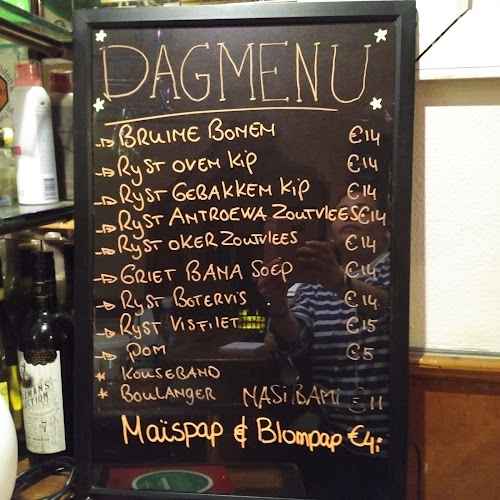 DAGMENU
→ BRUINE BONEN €14
→ RYST OVEN KIP €14
→ RYST GEBAKKEN KIP €14
→ RYST ANTROEWA ZOUTVLEES €14
→ RYST OKER ZOUTVLEES €14
→ GRIET BANA SOEP €14
→ RYST BOTERVIS €14
→ RYST VISFILET €15
→ POM €5
* KOUSEBAND
* BOULANGER NASI BAMI €11
Maïspap & Blompap €4,-